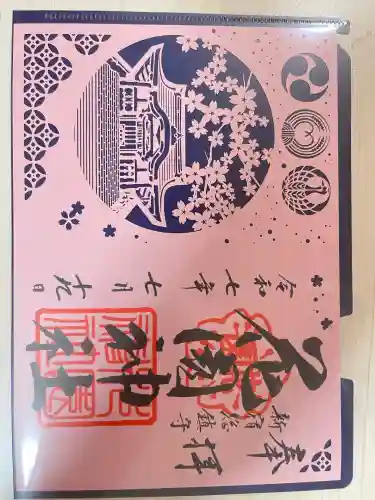 奉拝
新宿総鎮守
花園神社
令和七年
七月十九日